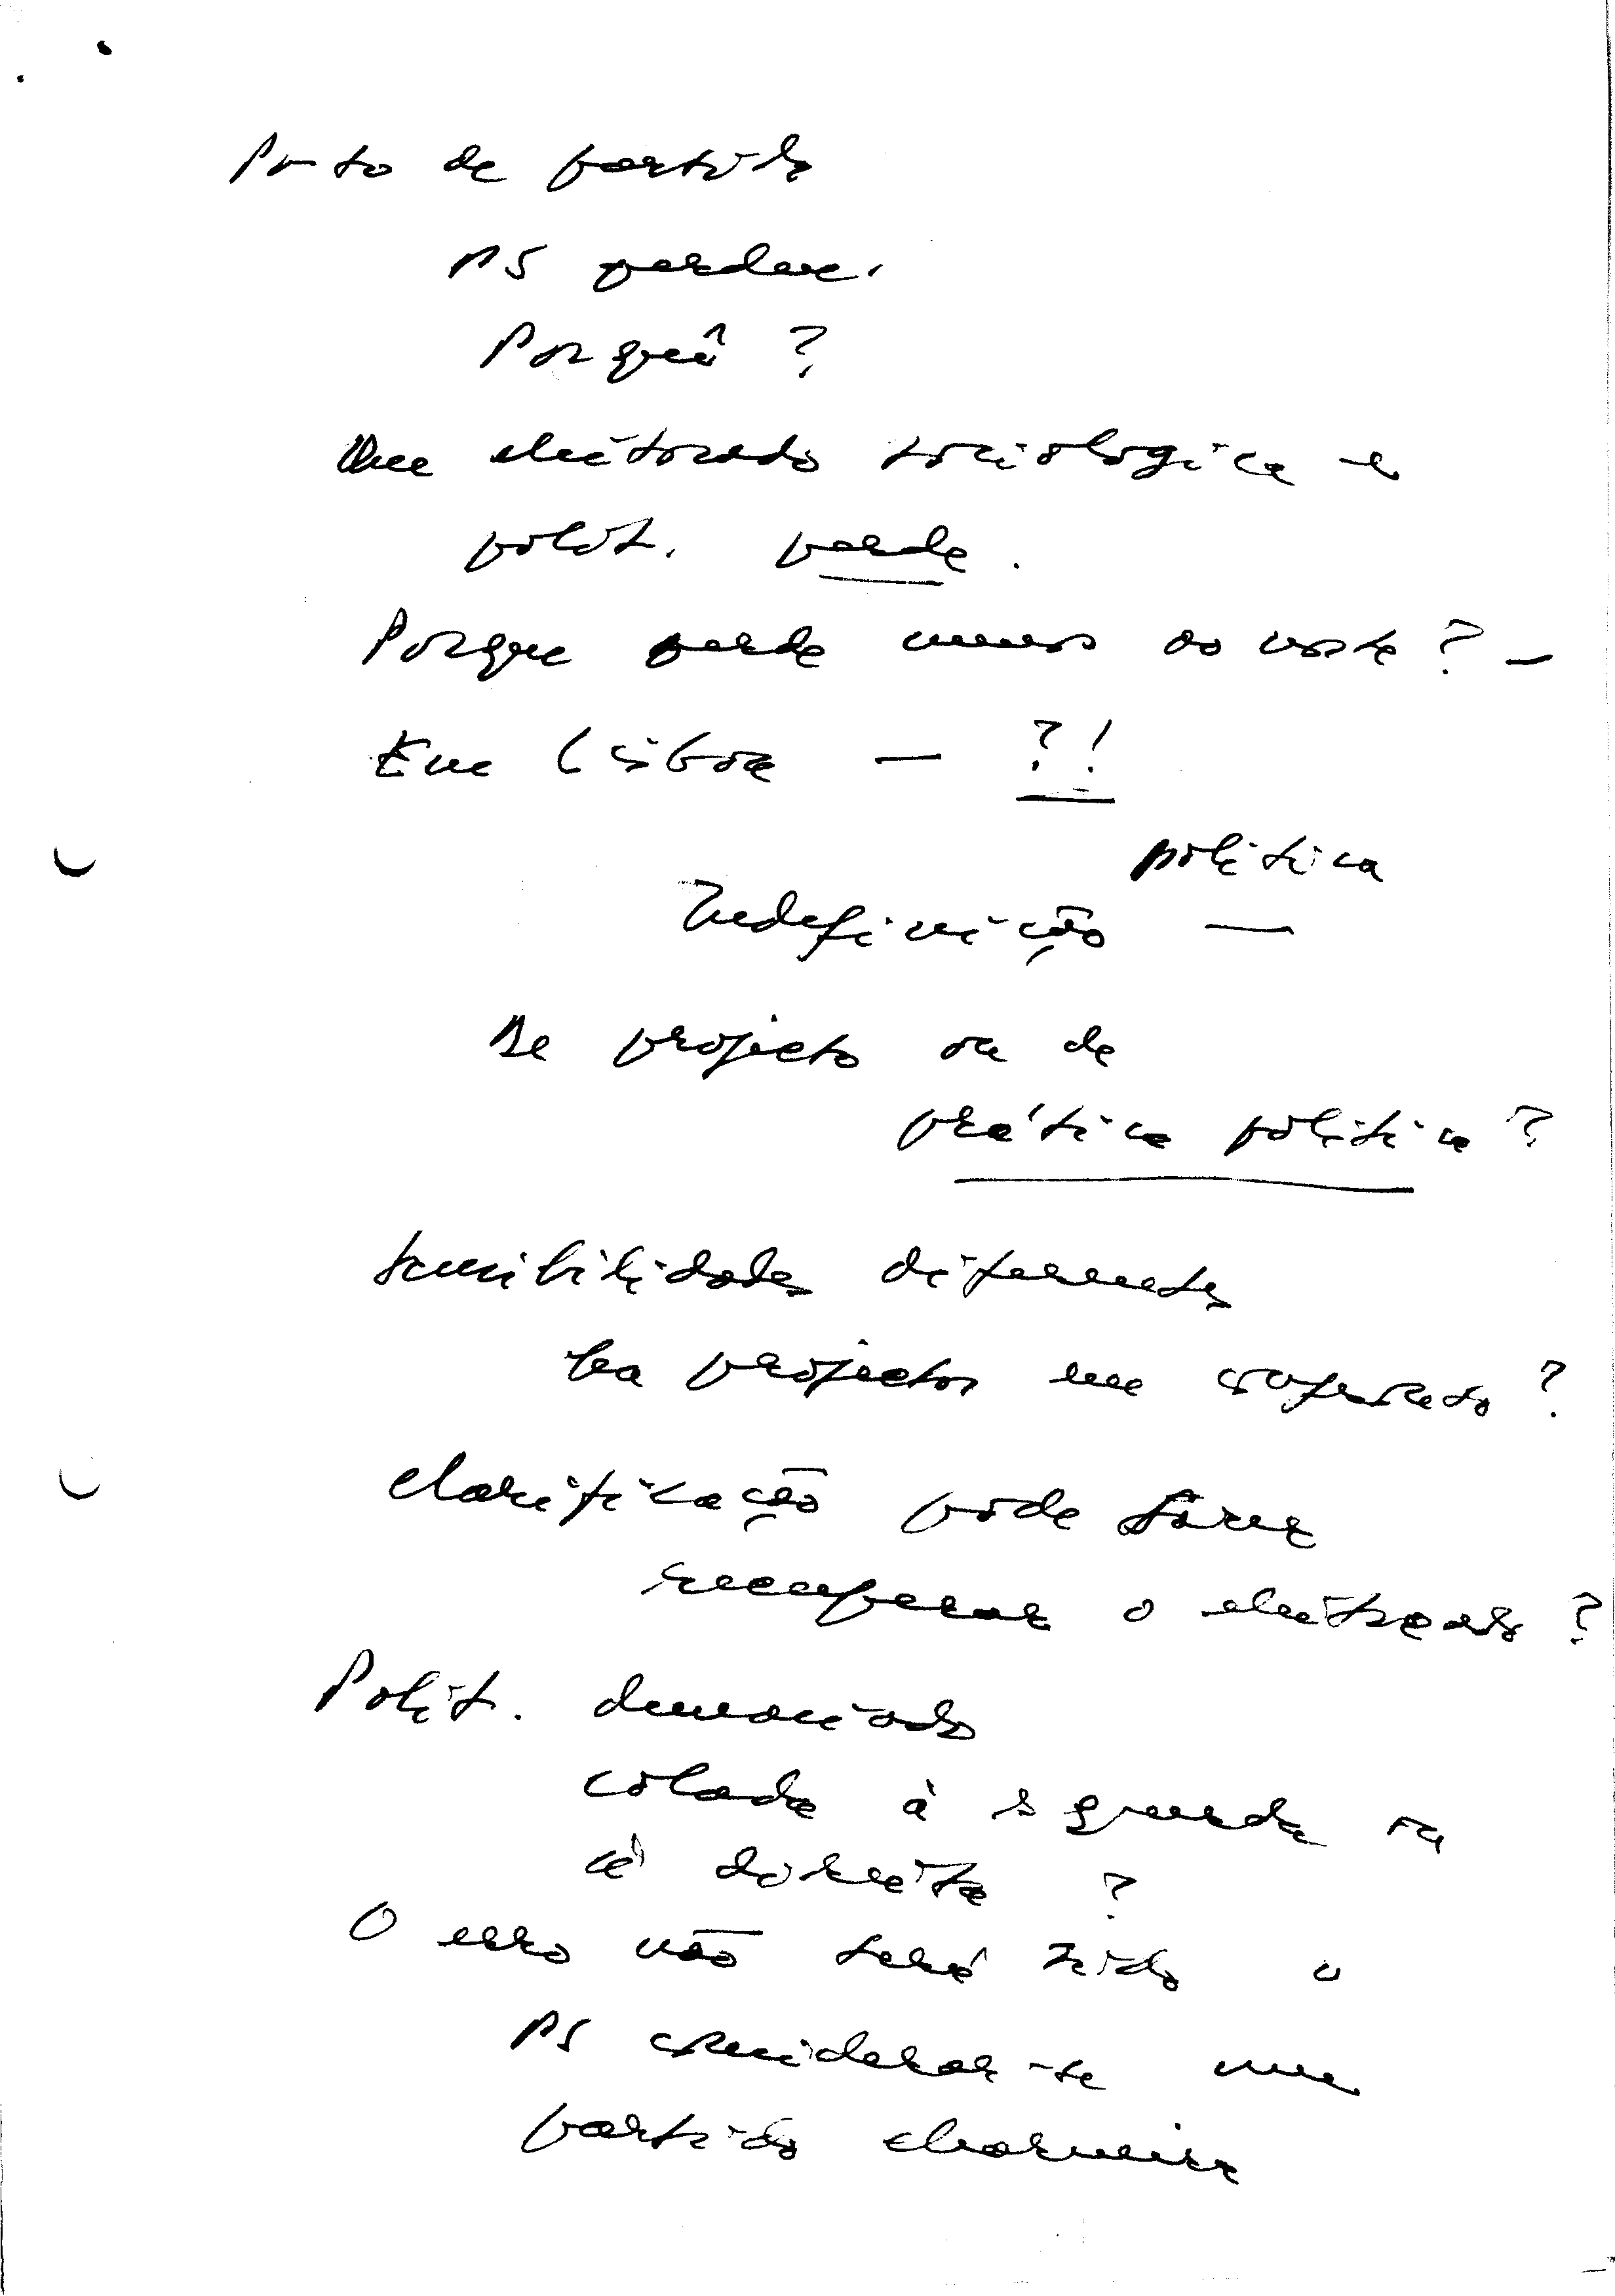 Ponto de partida
PS perdeu.
Porquê ?
Que eleitorado sociologica e
polit. perde.
Porque perde menos no norte ? —
Em Lisboa — ?!
política
Indefinição —
De projecto ou de
prática politica ?
Sensibilidades diferentes
ou projectos em confronto ?
Clarificação pode fazer
recuperar o eleitorado ?
Polit. demasiado
colada à esquerda ou
à direita ?
O erro não terá sido o
PS considerar-se um
partido charneira